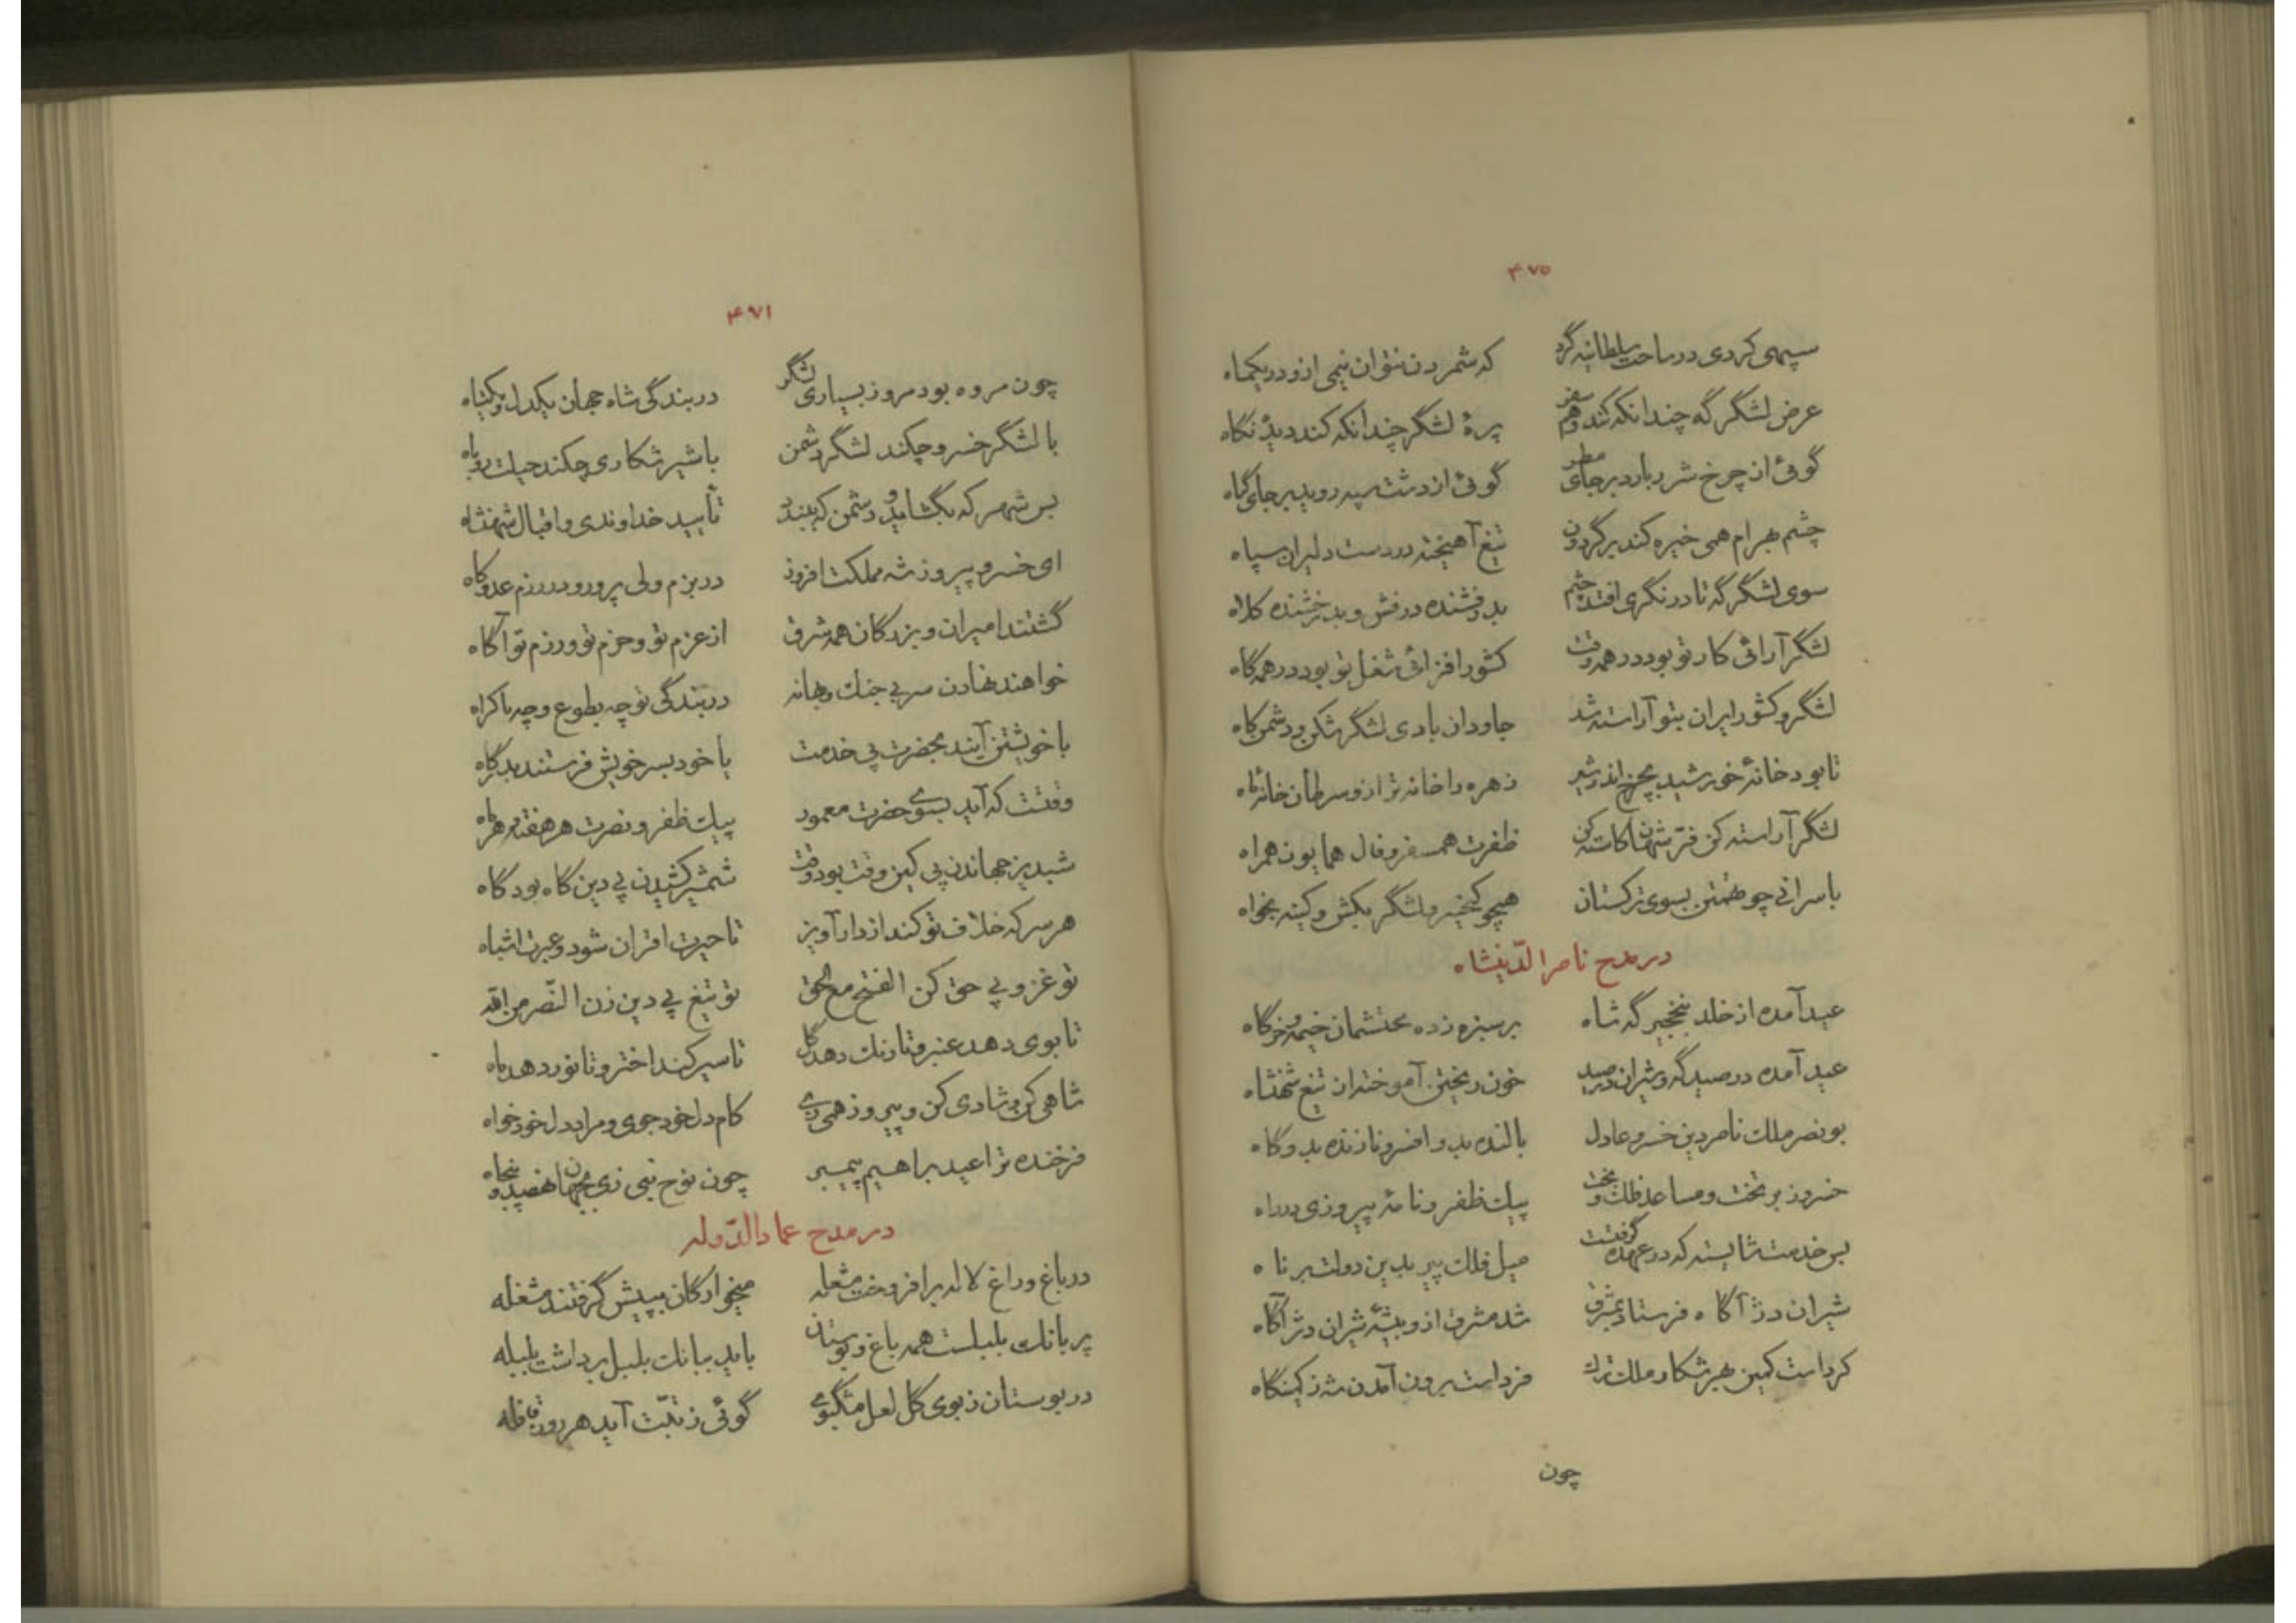 ۴۷۵
سپهی کردی در ساحت سلطانیه گرد که شمردن نتوان نیمی ازو در یکماه
عرض لشگر گه چندانکه کند وهم سفر پرهٔ لشگر چندانکه کند دیده نگاه
گوئی از چرخ شرر بارد بر جای مطر گوئی از دشت سپه روید بر جای گیاه
چشم بهرام همی خیره کند بر گردون تیغ آهیخته در دست دلیران سپاه
سوی لشگر گه تا در نگری افتد چشم بدرفشنده درفش و بدرخشنده کلاه
لشگر آرائی کار تو بود در همه وقت کشور افزائی شغل تو بود در همه گاه
لشگر و کشور ایران بتو آراسته شد جاودان بادی لشگر شکن و دشمن کاه
تا بود خانهٔ خورشید بچرخ اندر شیر زهره را خانه ترازو سرطان خانهٔ ماه
لشگر آراسته کن فتر شهان کاسته کن ظفرت همسفر و فال همایون همراه
با سرانی چو تهمتن بسوی ترکستان همچو کیخسرو لشگر بکش و کینه بخواه
در مدح ناصرالدینشاه
عید آمده از خلد بنخجیر گه شاه بر سبزه زده محتشمان خیمه و خرگاه
عید آمده در صید گه و شیران در صید خون ریختن آموخته از تیغ شهنشاه
بونصر ملک ناصر دین خسرو عادل بالنده بدو افسر و نازنده بدو گاه
خسرو ز بر تخت و مساعد فلک و بخت پیک ظفر و نامهٔ پیروزی در راه
بس خدمت شایسته که در عهده گرفتست میل فلک پیر بدین دولت برناه
شیران دژآگاه فرستاد بمشرق شد مشرق ازو بیشهٔ شیران دژآگاه
کرداست کمین بهر شکار ملک ترک فرداست برون آمدن شه ز کمینگاه
چون
۴۷۱
چون مروه بود مرو ز بسیاری لشگر در بندگی شاه جهان یکدل و یکتاه
با لشگر خسرو چکند لشگر دشمن با شیر شکاری چکند حیلت روباه
بس شهر که بگشاید و دشمن که ببندد تأیید خداوندی و اقبال شهنشاه
ای خسرو پیروز شه مملکت افروز در بزم ولی پرور و در رزم عدو کاه
گشتند امیران و بزرگان همه شرق از عزم تو و حزم تو و رزم تو آگاه
خواهند نهادن سر بی جنگ و بهانه در بندگی تو چه بطوع و چه باکراه
با خویشتن آیند بحضرت پی خدمت یا خود پسر خویش فرستند بدرگاه
وقتست که آید بسوی حضرت معمور پیک ظفر و نصرت هر هفته و هر ماه
شبدیز جهاندن پی کین وقت بود وقت شمشیر کشیدن پی دین گاه بود گاه
هر سر که خلاف تو کند از دار آویز تا حیرت اقران شود و عبرت اشباه
تو غزو پی حق کن الفتح مع الحق تو تیغ پی دین زن النّصر من الله
تا بوی دهد عنبر و تا رنگ دهد گل تا سیر کند اختر و تا نور دهد ماه
شاهی کن و شادی کن و پیروز همی زی کام دل خود جوی و مراد دل خود خواه
فرخنده ترا عید براهیم پیمبر چون نوح نبی زی بجهان نهصد و پنجاه
در مدح عمادالدّوله
در باغ و راغ لاله برافروخت مشعله میخوارگان بپیش گرفتند مشغله
پر بانگ بلبلست همه باغ و بوستان باید ببانگ بلبل برداشت بلبله
در بوستان ز بوی گل لعل مشگبوی گوئی ز تبّت آید هر روز قافله